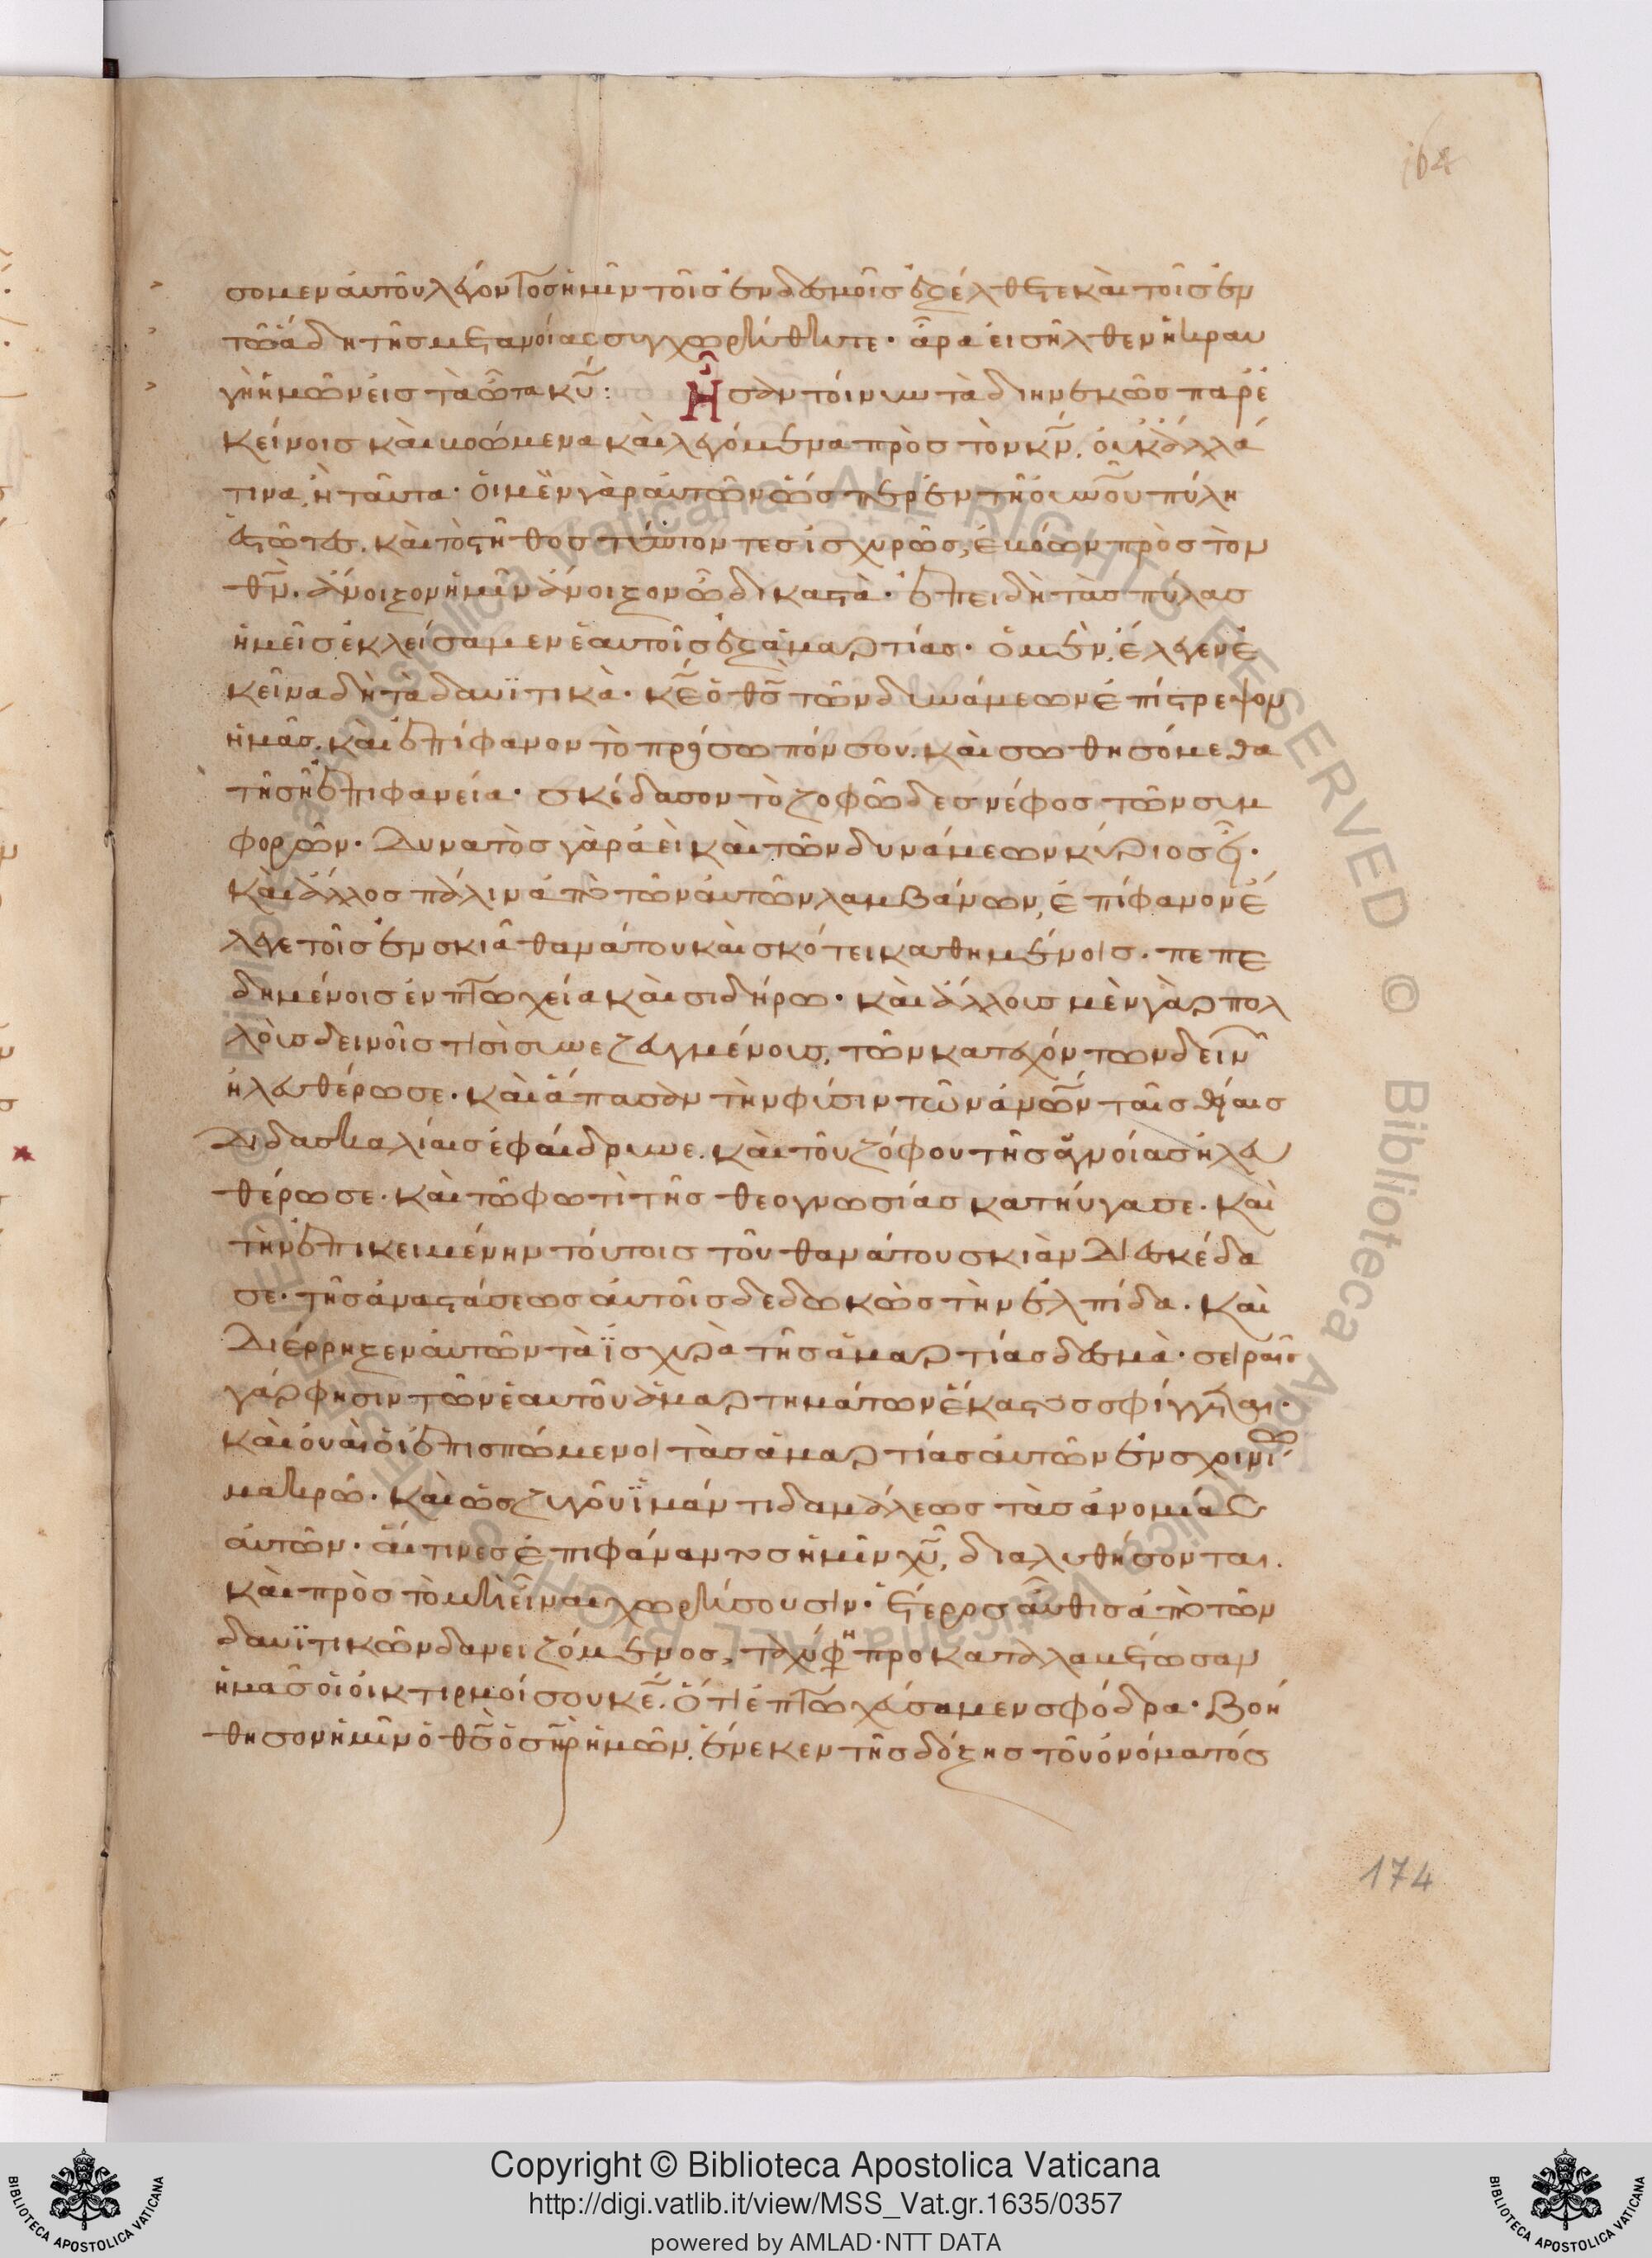 164
σομεν αὐτοῦ λέγοντος ἡμῖν τοῖς ἐν δεσμοῖς ἐξέλθετε καὶ τοῖς ἐν
τῶ ἅδη τῆς μετανοίας συγχωρήθητε· ἆρα εἰσῆλθεν ἡ κραυ
γὴ ἡμῶν εἰς τὰ ὦτα κυ: Ἦσαν τοίνυν τὰ διηνεκῶς παρ' ἐ
κείνοις καὶ βοώμενα καὶ λεγόμενα πρὸς τὸν κν, οὐκ ἄλλά
τινα, ἢ ταῦτα· οἱ μὲν γὰρ αὐτῶν ὥσπερ ἐν τῆ οὐνου πύλη
ἑστῶτες. καὶ τὸ στῆθος τύπτοντες ἰσχυρῶς, ἐβόων πρὸς τὸν
θν. ἄνοιξον ἡμῖν ἄνοιξον ὦ δικαστὰ· ἐπειδὴ τὰς πύλας
ἡμεῖς ἐκλείσαμεν ἑαυτοῖς ἐξ ἁμαρτίας· ὁ μὲν, ἔλεγεν ἐ
κεῖνα δὴ τὰ δαυϊτικὰ· κε ὁ θς τῶν δυνάμεων ἐπίστρεψον
ἡμᾶς. καὶ ἐπίφανον τὸ πρόσωπόν σου. καὶ σωθησόμεθα
τῆ σῆ ἐπιφανεία· σκέδασον τὸ ζοφῶδες νέφος τῶν συμ
φορῶν· Δυνατὸς γὰρ ἀεὶ καὶ τῶν δυνάμεων κύριος εἶ·
Καὶ ἄλλος πάλιν ἀπὸ τῶν αὐτῶν λαμβάνων, ἐπίφανον ἔ
λεγε τοῖς ἐν σκιᾶ θανάτου καὶ σκότει καθημένοις. πεπε
δημένοις ἐν πτωχεία καὶ σιδήρω· καὶ ἄλλοις μὲν γὰρ πολ
λοῖς δεινοῖς τισὶ συνεζευγμένους, τῶν κατεχόντων δεινῶν
ἠλευθέρωσε. καὶ ἅπασαν τὴν φύσιν τῶν ἀνων ταῖς θείαις
Διδασκαλίαις ἐφαίδρυνε. καὶ τοῦ ζόφου τῆς ἀγνοίας ἠλευ
θέρωσε. καὶ τῶ φωτὶ τῆς θεογνωσίας κατηύγασε. Καὶ
τὴν ἐπικειμένην τούτοις τοῦ θανάτου σκιὰν Διεσκέδα
σε· τῆς ἀναστάσεως αὐτοῖς δεδωκὼς τὴν ἐλπίδα. Καὶ
Διέρρηξεν αὐτῶν τὰ ἰσχυρὰ τῆς ἁμαρτίας δεσμὰ· σειραῖς
γάρ φησιν τῶν ἑαυτοῦ ἁμαρτημάτων ἕκαστος σφίγγεται.
καὶ οὐαὶ οἱ ἐπισπώμενοι τὰς ἁμαρτίας αὐτῶν ἐν σχοινίω
μακρῶ. καὶ ὡς ζυγοῦ ἱμάντι δαμάλεως τὰς ἀνομίας
αὐτῶν· αἵτινες ἐπιφάναντος ἡμῖν χυ, διαλυθήσονται.
καὶ πρὸς τὸ μὴ εἶναι χωρήσουσιν· Ἕτερος αὖθις ἀπὸ τῶν
δαυϊτικῶν δανειζόμενος, ταχύ φη προκαταλαμβέτωσαν
ἡμᾶς οἱ οἰκτιρμοί σου κε. ὅτι ἐπτωχεύσαμεν σφόδρα· Βοή
θησον ἡμῖν ὁ θς ὁ σηρ ἡμῶν, ἕνεκεν τῆς δόξης τοῦ ὀνόματός
174
Copyright © Biblioteca Apostolica Vaticana
http://digi.vatlib.it/view/MSS_Vat.gr.1635/0357
powered by AMLAD·NTT DATA